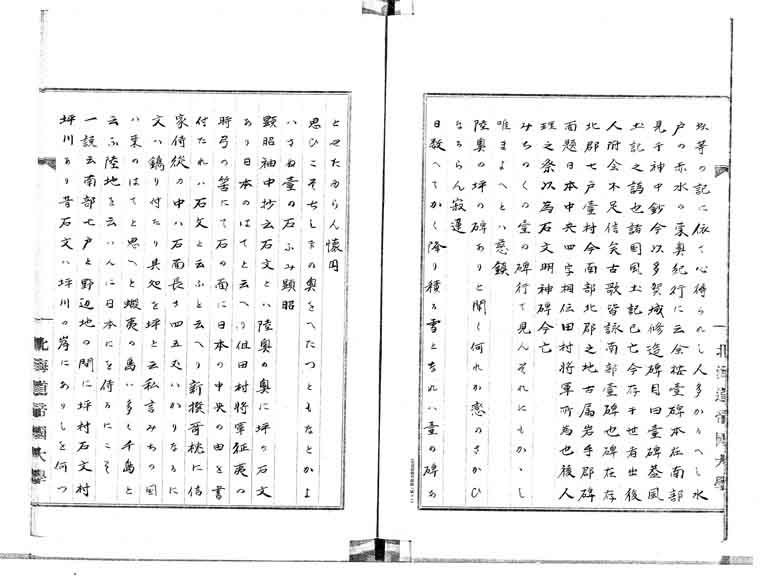 炊等の記に依て心得られし人多かるへし水
戸の赤水の東奥紀行に云余按壷碑本在南部
見于神中鈔今以多賀城修造碑目曰壷碑蓋風
土記之謁也諸国風土記已亡今存于世者出後
人附会不足信矣古歌皆詠南部壷碑也碑在存
北郡七戸壷村今南部北郡之地古属岩手郡碑
面題日本中央四字相伝田村将軍所為也後人
埋之祭以為石文明神碑今亡
みちのくの壷の碑行て見んそれにもかゝし
唯まよへとハ 慈鎮
陸奥の坪の碑ありと聞く何れか恋のさかひ
なるらん 寂蓮
日数へてかく降り積る雪となれハ壷の碑あ
とせたゆらん 懐円
思ひこそちしまの奥をへたつともなとかよ
ハさぬ壷の石ふみ 顕昭
顕昭袖中抄云石文とハ陸奥の奥に坪の石文
あり日本のはてと云へり但田村将軍征夷の
時弓の筈にて石の面に日本の中央の由を書
付たれハ石文と云ふと云へり新撰哥枕に信
家侍従の申ハ石面長さ四五丈ハかりなるに
文ハ鐫り付たり其処を坪と云私言みちの国
ハ東のはてと思へと蝦夷の島ハ多く千島と
云ふ陸地を云ハんに日本にを侍るにこそ
一説云南部七戸と野辺地の間に坪村石文村
坪川あり昔石文ハ坪川の岸にありしを何つ
北海道帝国大学
北海道帝国大学